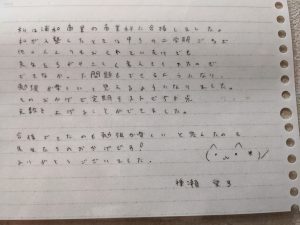 私は浦和商業の商業科に合格しました。
私が入塾したときは中3の二学期ごろで
他の人よりもおくれていたけども
先生たちがやさしく教えてくれたので
できなかった問題もできるようになり、
勉強が楽しいと思えるようになりました。
そのおかげで定期テストで
点数を上げることができました。
合格できたのも勉強が楽しいと思えたのも
先生たちのおかげです!
ありがとうございました。